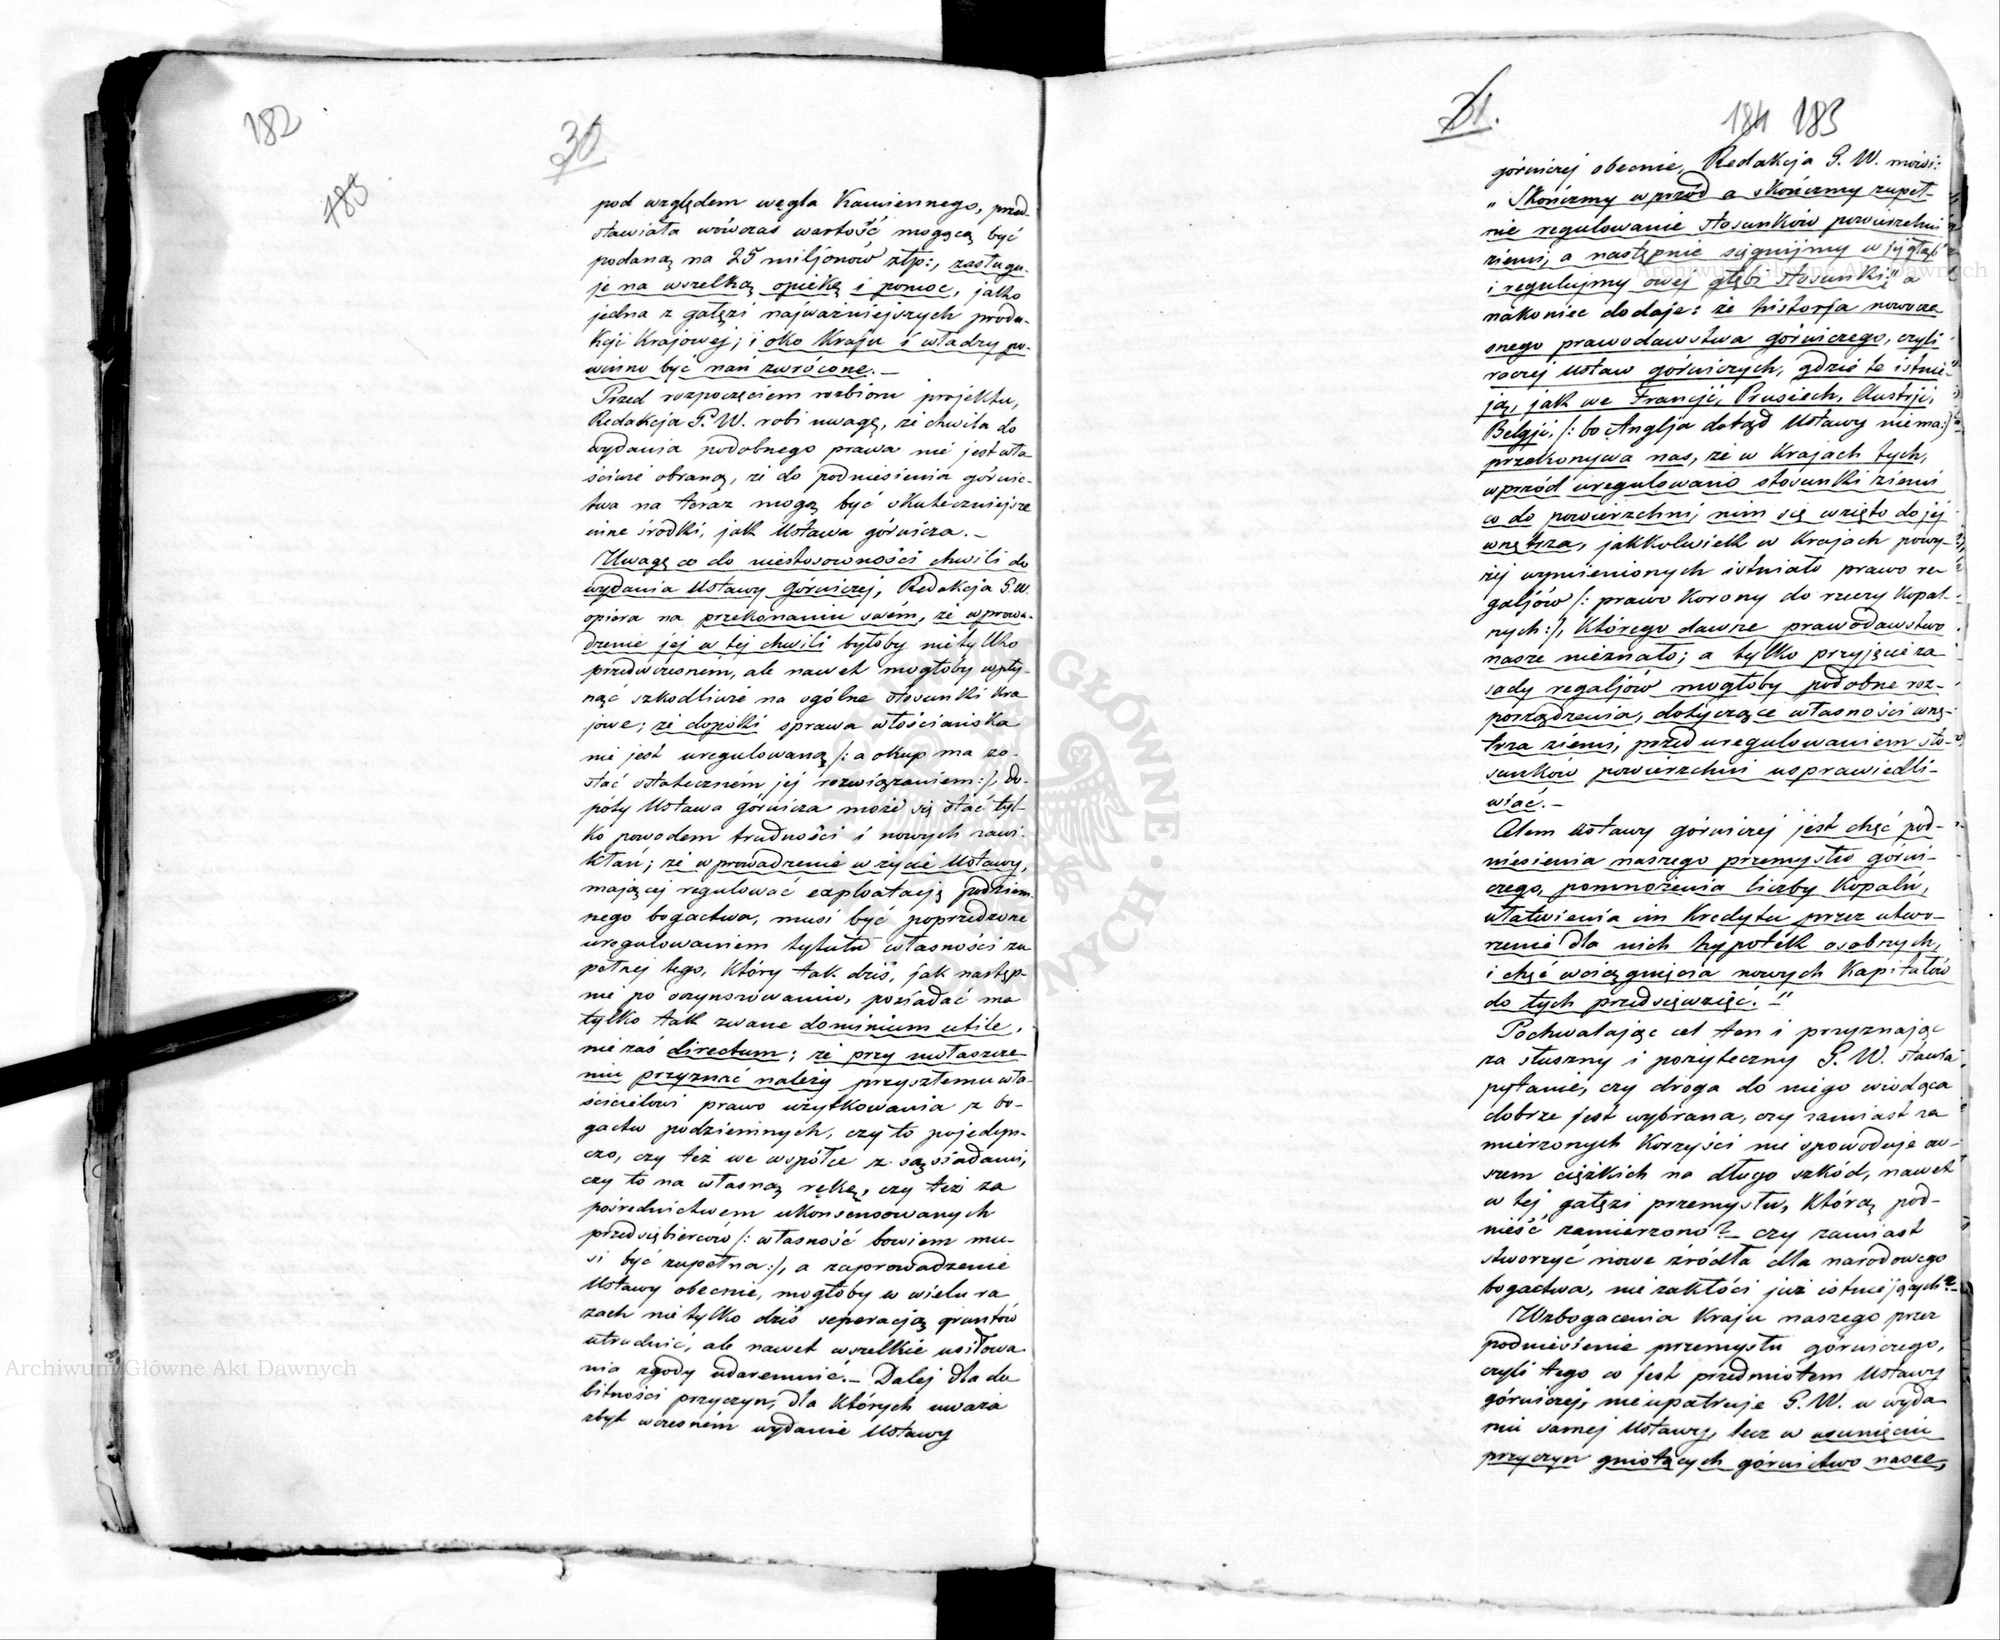 182
183
30
pod względem węgla Kamiennego, przed-
stawiała wówczas wartość mogącą być
podaną na 25 miljonów złp:, zasługu-
je na wszelką opiekę i pomoc, jako
jedna z gałęzi najważniejszych produ-
kcji Krajowej; i oko Kraju i władzy po-
winno być nań zwrócone. —
Przed rozpoczęciem rozbioru projektu,
Redakcja G. W. robi uwagę, że chwila do
wydania podobnego prawa nie jest wła
ściwie obraną, że do podniesienia górnic-
twa na teraz mogą być skuteczniejsze
inne środki, jak Ustawa górnicza. —
Uwagę co do niestosowności chwili do
wydania Ustawy Górniczej, Redakcja G. W.
opiera na przekonaniu swém, że wprowa-
dzenie jej w tej chwili byłoby nietylko
przedwczesnem, ale nawet mogłoby wpły-
nąć szkodliwie na ogólne stosunki Kra
jowe; że dopóki sprawa włościańska
nie jest uregulowaną /: a okup ma zo-
stać ostateczném jej rozwiązaniem :/, do-
póty Ustawa górnicza może się stać tyl-
ko powodem trudności i nowych zawi-
kłań; że wprowadzenie w życie Ustawy,
mającej regulować exploatacją podziem-
nego bogactwa, musi być poprzedzone
uregulowaniem tytułu własności zu
pełnej tego, który tak dziś, jak następ-
nie po oczynszowaniu, posiadać ma
tylko tak zwane dominium utile,
nie zaś directum; że przy uwłaszcze
niu przyznać należy przyszłemu wła-
ścicielowi prawo użytkowania z bo-
gactw podziemnych, czy to pojedyn-
czo, czy też we współce z sąsiadami,
czy to na własną rękę, czy też za
pośrednictwem ukonsensowanych
przedsiębierców /: własność bowiem mu-
si być zupełna :/, a zaprowadzenie
Ustawy obecnie, mogłoby w wielu ra
zach nietylko dziś seperacją gruntów
utrudnić, ale nawet wszelkie usiłowa
nia zgody udaremnić. — Dalej dla do
bitności przyczyn, dla których uważa
zbyt wczesném wydanie Ustawy
31.
184 183
górniczej obecnie, Redakcja G. W. mówi:
„Skończmy wprzód a skończmy zupeł-
nie regulowanie stosunków powierzchni
ziemi, a następnie sięgnijmy w jej głąb
i regulujmy owej głębi stosunki;" a
nakoniec dodaje: że historja nowocze
snego prawodawstwa górniczego, czyli
raczej Ustaw górniczych, gdzie te istnie-
ją, jak we Francji, Prusiech, Austrji,
Belgji, /: bo Anglja dotąd Ustawy niema :/
przekonywa nas, że w Krajach tych,
wprzód uregulowano stosunki ziemi
co do powierzchni, nim się wzięto do jej
wnętrza, jakkolwiek w Krajach powy-
żej wymienionych istniało prawo re
galjów /: prawo Korony do rzeczy Kopal-
nych :/, którego dawne prawodawstwo
nasze nieznało; a tylko przyjęcie za
sady regaljów mogłoby podobne roz-
porządzenia, dotyczące własności wnę-
trza ziemi, przed uregulowaniem sto-
sunków powierzchni usprawiedli-
wiać. —
Celem Ustawy górniczej jest chęć pod-
niesienia naszego przemysłu górni-
czego, pomnożenia liczby Kopalń,
ułatwienia im Kredytu przez utwo-
rzenie dla nich hypoték osobnych,
i chęć wciągnięcia nowych Kapitałów
do tych przedsięwzięć. —"
Pochwalając cel ten i przyznając
za słuszny i pożyteczny G. W. stawia
pytanie, czy droga do niego wiodąca
dobrze jest wybrana, czy zamiast za
mierzonych Korzyści nie spowoduje ow-
szem ciężkich na długo szkód, nawet
w tej gałęzi przemysłu, którą pod-
nieść zamierzono? — czy zamiast
stworzyć nowe źródła dla narodowego
bogactwa, nie zakłóci już istniejących? —
Wzbogacenia Kraju naszego przez
podniesienie przemysłu górniczego,
czyli tego co jest przedmiotem Ustawy
górniczej, nie upatruje G. W. w wyda-
niu samej Ustawy, lecz w usunięciu
przyczyn gniotących górnictwo nasze,
Archiwum Główne Akt Dawnych
Archiwum Główne Akt Dawnych